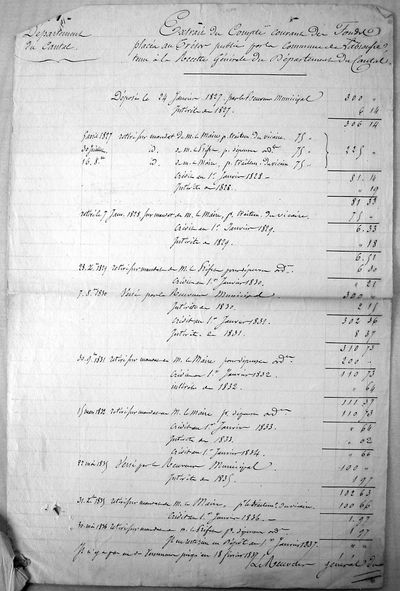 Département
du Cantal
Extrait du Compte courant des Fonds
placés au Trésor public par la Commune de
tenu à la Recette Générale du Département du Cantal.
Déposé le 24 Janvier 1827 par le Receveur Municipal 300 "
Intérêts en 1827. 6 14
306 14
5 avril 1827 retiré par mandat de M. le Maire p. traitem. du vicaire 75 "
30 juillet id. de M. le Préfet p. dépense ord.re 75 " 225 "
16. 8.bre id. de M. le Maire, p. traitem. du vicaire 75 "
Crédit au 1.er Janvier 1828 81 14
Intérêts en 1828. " 19
81 33
retiré le 7 Janv. 1828 par mandat de M. le Maire, p. traitem. du vicaire 75 "
Crédit au 1.er Janvier 1829. 6 33
Intérêts en 1829. " 18
6 51
retiré par mandat de M. le Préfet pour dépense ord. 6 30
Crédit au 1.er Janvier 1830. " 21
1830 Versé par le Receveur Municipal 300 "
Intérêts en 1830. 2 15
Crédit au 1.er Janvier 1831. 302 36
Intérêts en 1831 8 37
310 73
30 9.bre 1831 retiré par mandat de M. le Maire pour dépense ord.re 200 "
Crédit au 1.er Janvier 1832. 110 73
intérêts en 1832. " 64
111 37
15 mars 1832 retiré par mandat de M. le Maire, p. dépense ord.re 110 73
Crédit au 1.er Janvier 1833. " 64
Intérêts en 1833. " 02
Crédit au 1.er Janvier 1834. " 66
22 mai 1835 Versé par le Receveur Municipal 100 "
Intérêts en 1835. 1 97
102 63
retiré par mandat de M. le Maire, p. le traitem. du vicaire 100 66
Crédit au 1.er Janvier 1836. 1 97
30 mai 1836 retiré par mandat de M. le Préfet p. dépense ord. 1 97
Il ne reste rien en Dépôt au 1.er Janvier 1837. " "
Il n'y a pas eu de versement jusqu'au 18 février 1837.
Le Receveur général du